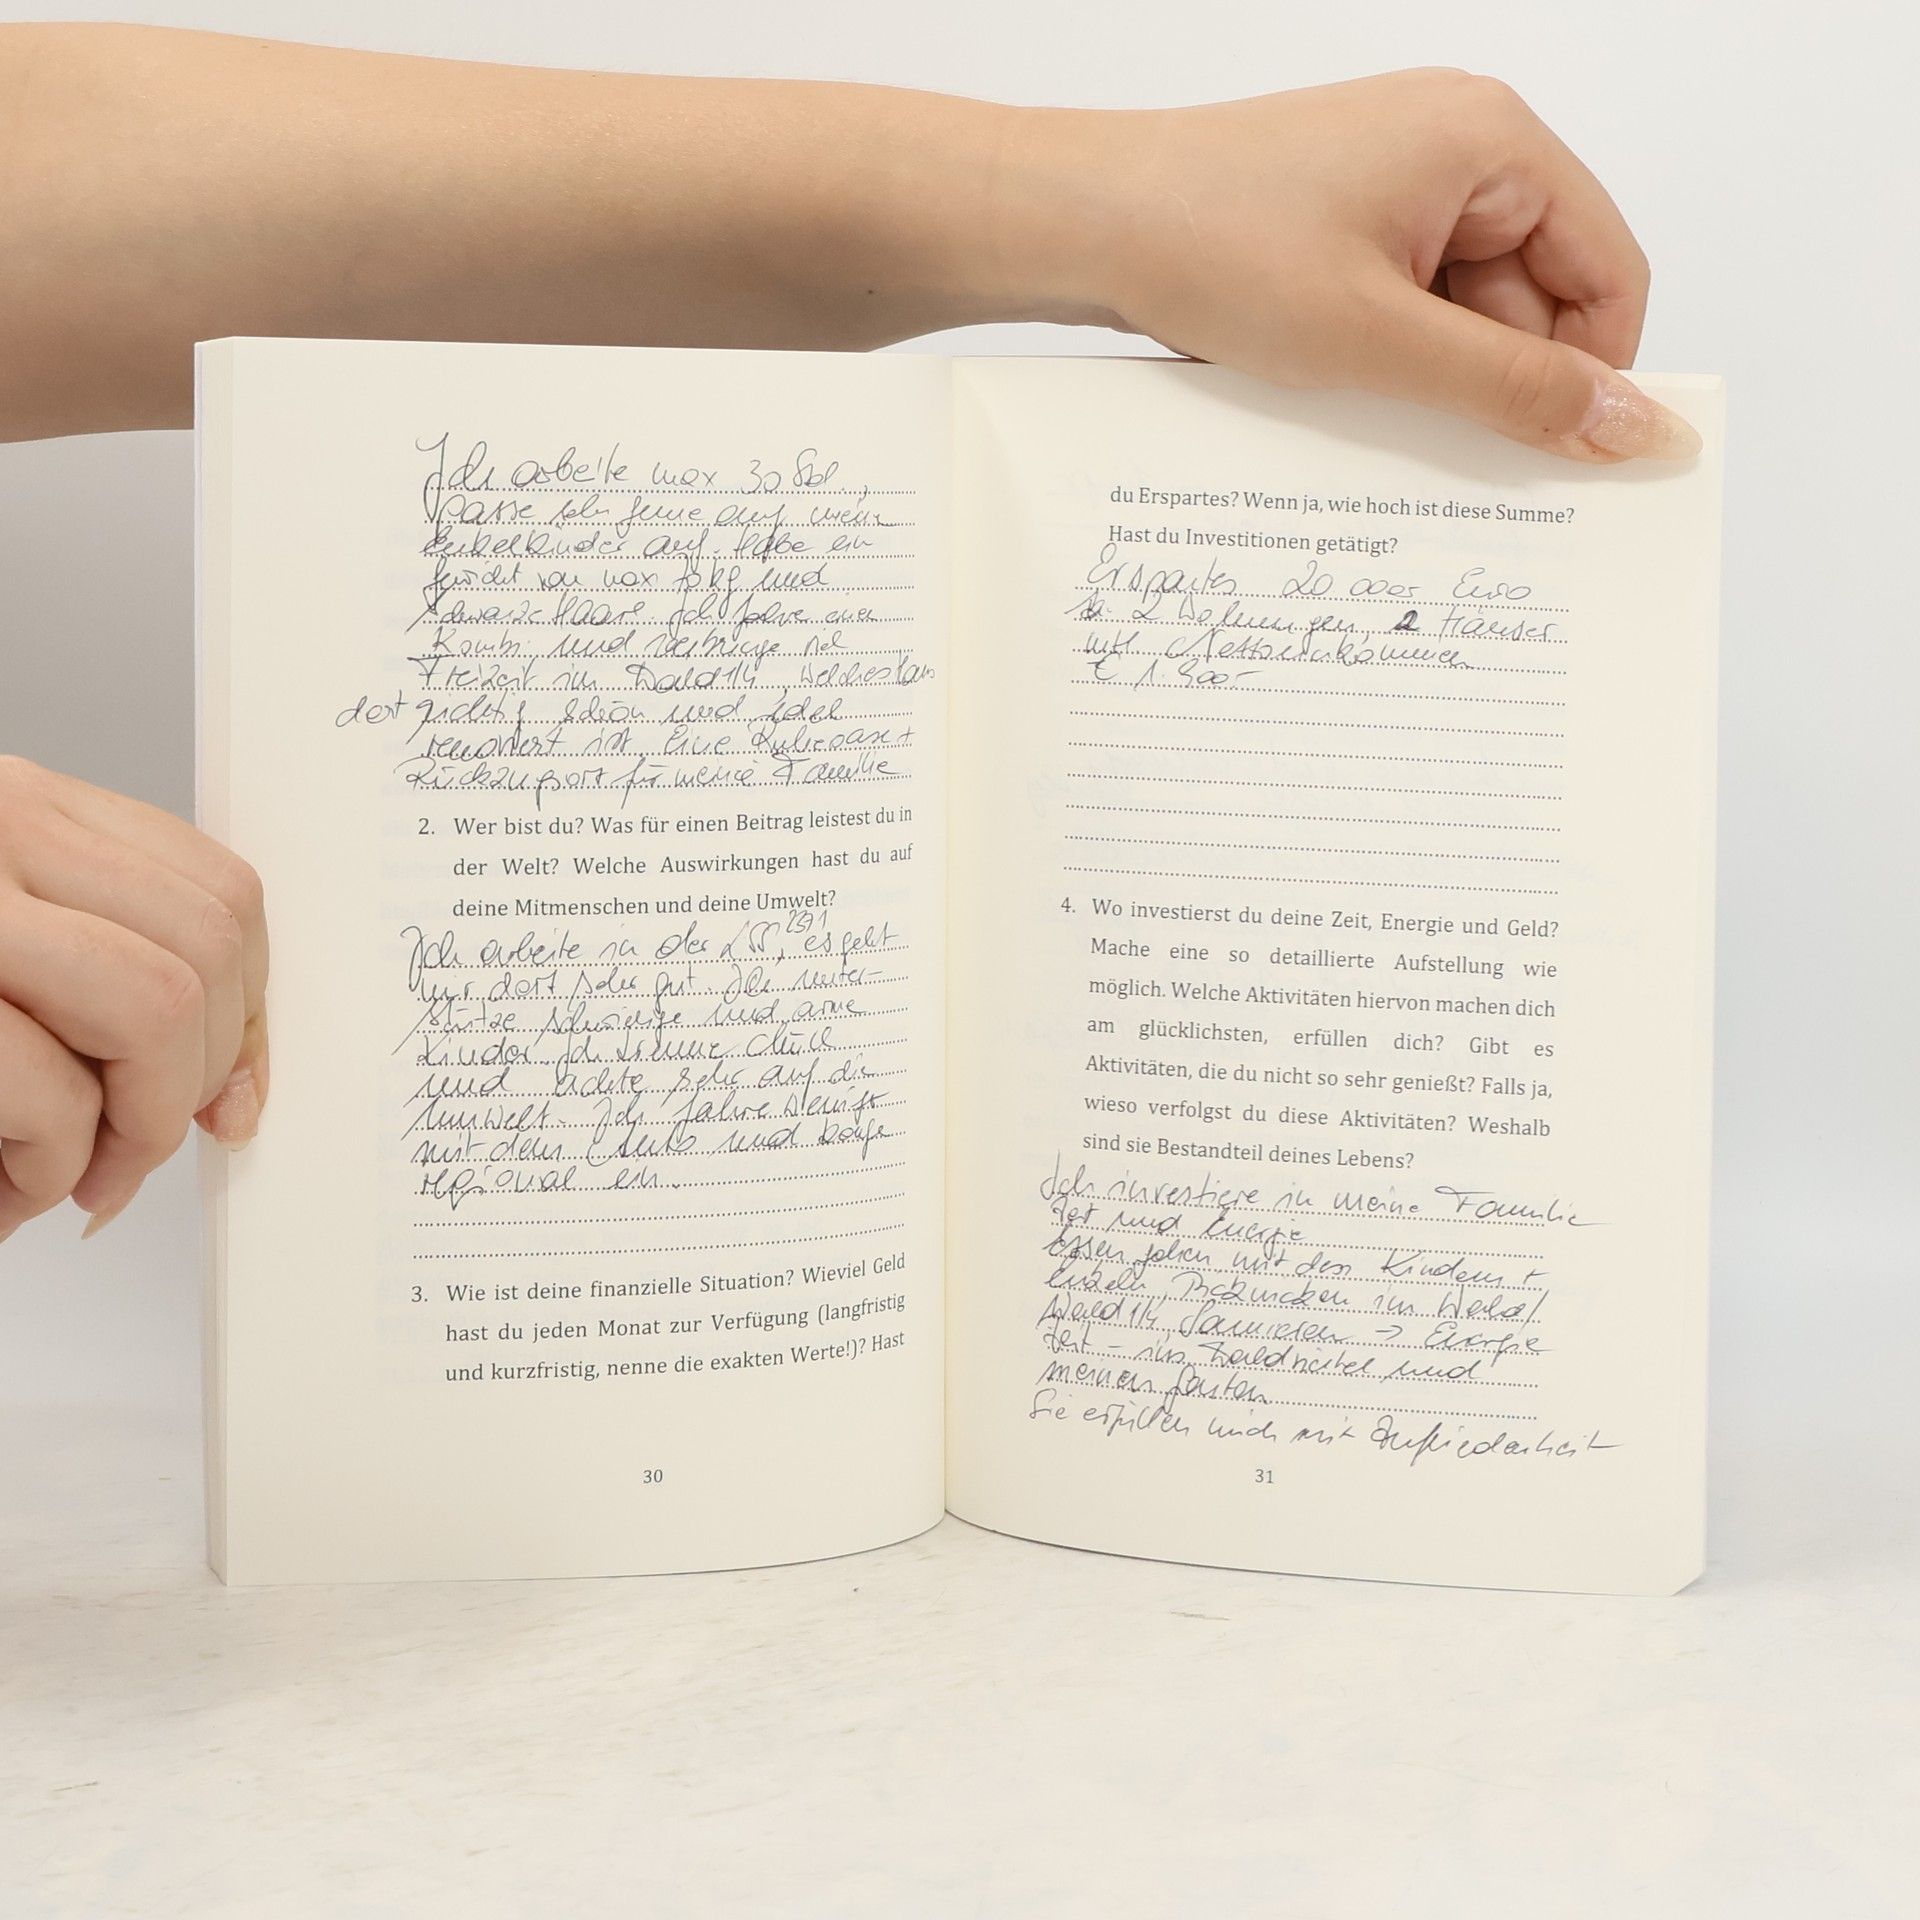 Ich arbeite max 30 Std.,
passe sehr gerne auf meine
Enkelkinder auf. Habe ein
Gewicht von max 70 kg und
schwarze Haare. Ich fahre einen
Kombi und verbringe viel
Freizeit im Wald 114, welches Haus
dort richtig schön und edel
renoviert ist. Eine Ruheoase +
Rückzugsort für meine Familie
2. Wer bist du? Was für einen Beitrag leistest du in
der Welt? Welche Auswirkungen hast du auf
deine Mitmenschen und deine Umwelt?
Ich arbeite in der 2371, es geht
mir dort sehr gut. Ich unter-
stütze schwierige und arme
Kinder. Ich trenne Müll
und achte sehr auf die
Umwelt. Ich fahre wenig
mit dem Auto und kaufe
regional ein.
3. Wie ist deine finanzielle Situation? Wieviel Geld
hast du jeden Monat zur Verfügung (langfristig
und kurzfristig, nenne die exakten Werte!)? Hast
30
du Erspartes? Wenn ja, wie hoch ist diese Summe?
Hast du Investitionen getätigt?
Erspartes 20 000 Euro
2 Wohnungen, 2 Häuser
mtl. Nettoeinkommen
€ 1.900,-
4. Wo investierst du deine Zeit, Energie und Geld?
Mache eine so detaillierte Aufstellung wie
möglich. Welche Aktivitäten hiervon machen dich
am glücklichsten, erfüllen dich? Gibt es
Aktivitäten, die du nicht so sehr genießt? Falls ja,
wieso verfolgst du diese Aktivitäten? Weshalb
sind sie Bestandteil deines Lebens?
Ich investiere in meine Familie
Zeit und Energie
Essen gehen mit den Kindern +
Enkeln, Picknicken im Wald/
Wald 114, Sanieren → Energie
Zeit - ins und
meinen Garten
Sie erfüllen mich mit Zufriedenheit
31